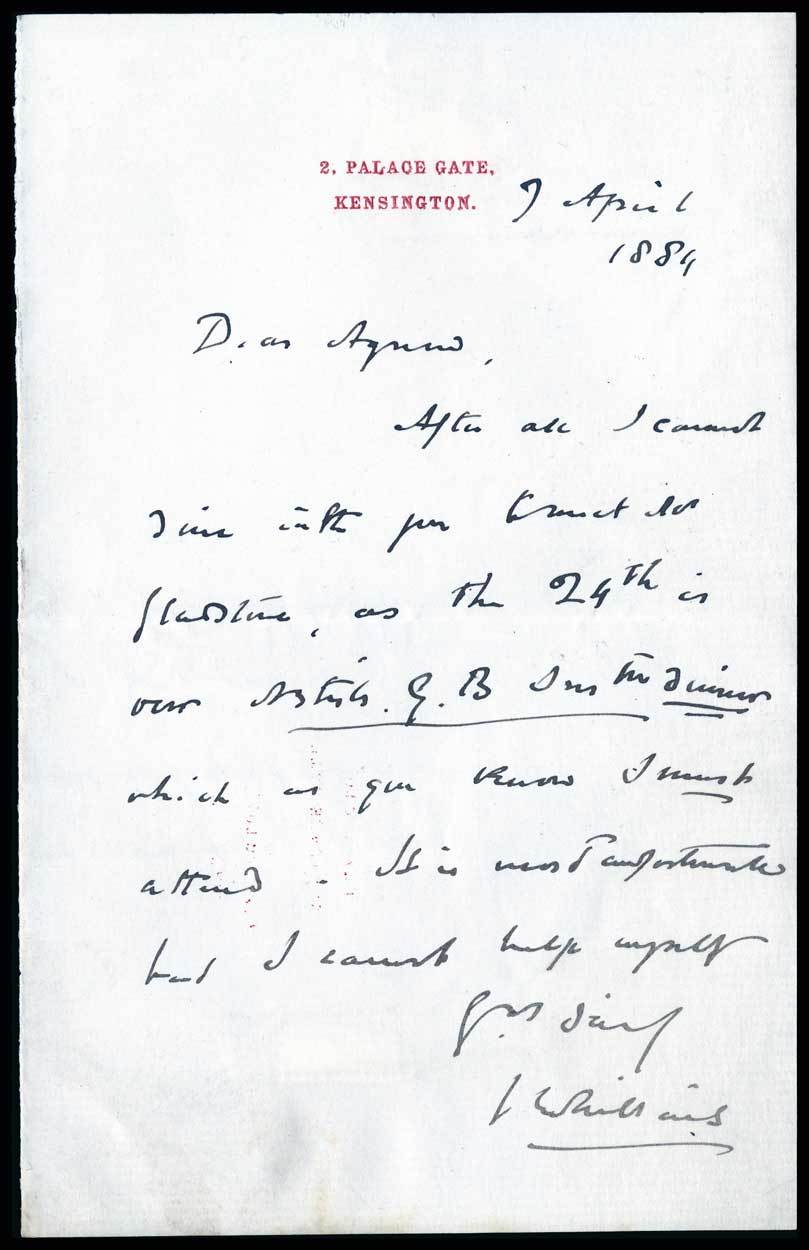 2, PALACE GATE,
KENSINGTON.
7 April
1884
Dear Agnew,
After all I cannot
dine with you to meet Mr
Gladstone, as the 24th is
our Artists. G. B. dinner
which as you know I must
attend. It is most unfortunate
but I cannot help myself
Yrs
J E Millais